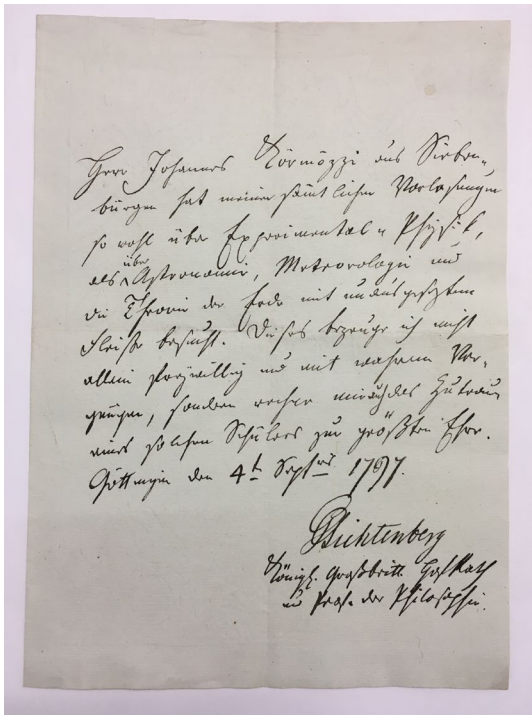 Herr Johannes Körmöczi aus Sieben-
bürgen hat meine sämtlichen Vorlesungen
so wohl über Experimental-Physik,
als über Astronomie, Meteorologie und
die Theorie der Erde mit unausgesetztem
Fleiße besucht. Dieses bezeuge ich nicht
allein freywillig und mit wahrem Ver-
gnügen, sondern rechne mir auch das Zutrauen
eines solchen Schülers zur größten Ehre.
Göttingen den 4t Septbr 1797.
GCLichtenberg
Königl. Großbritt. HofRath
und Prof. der Philosophie.